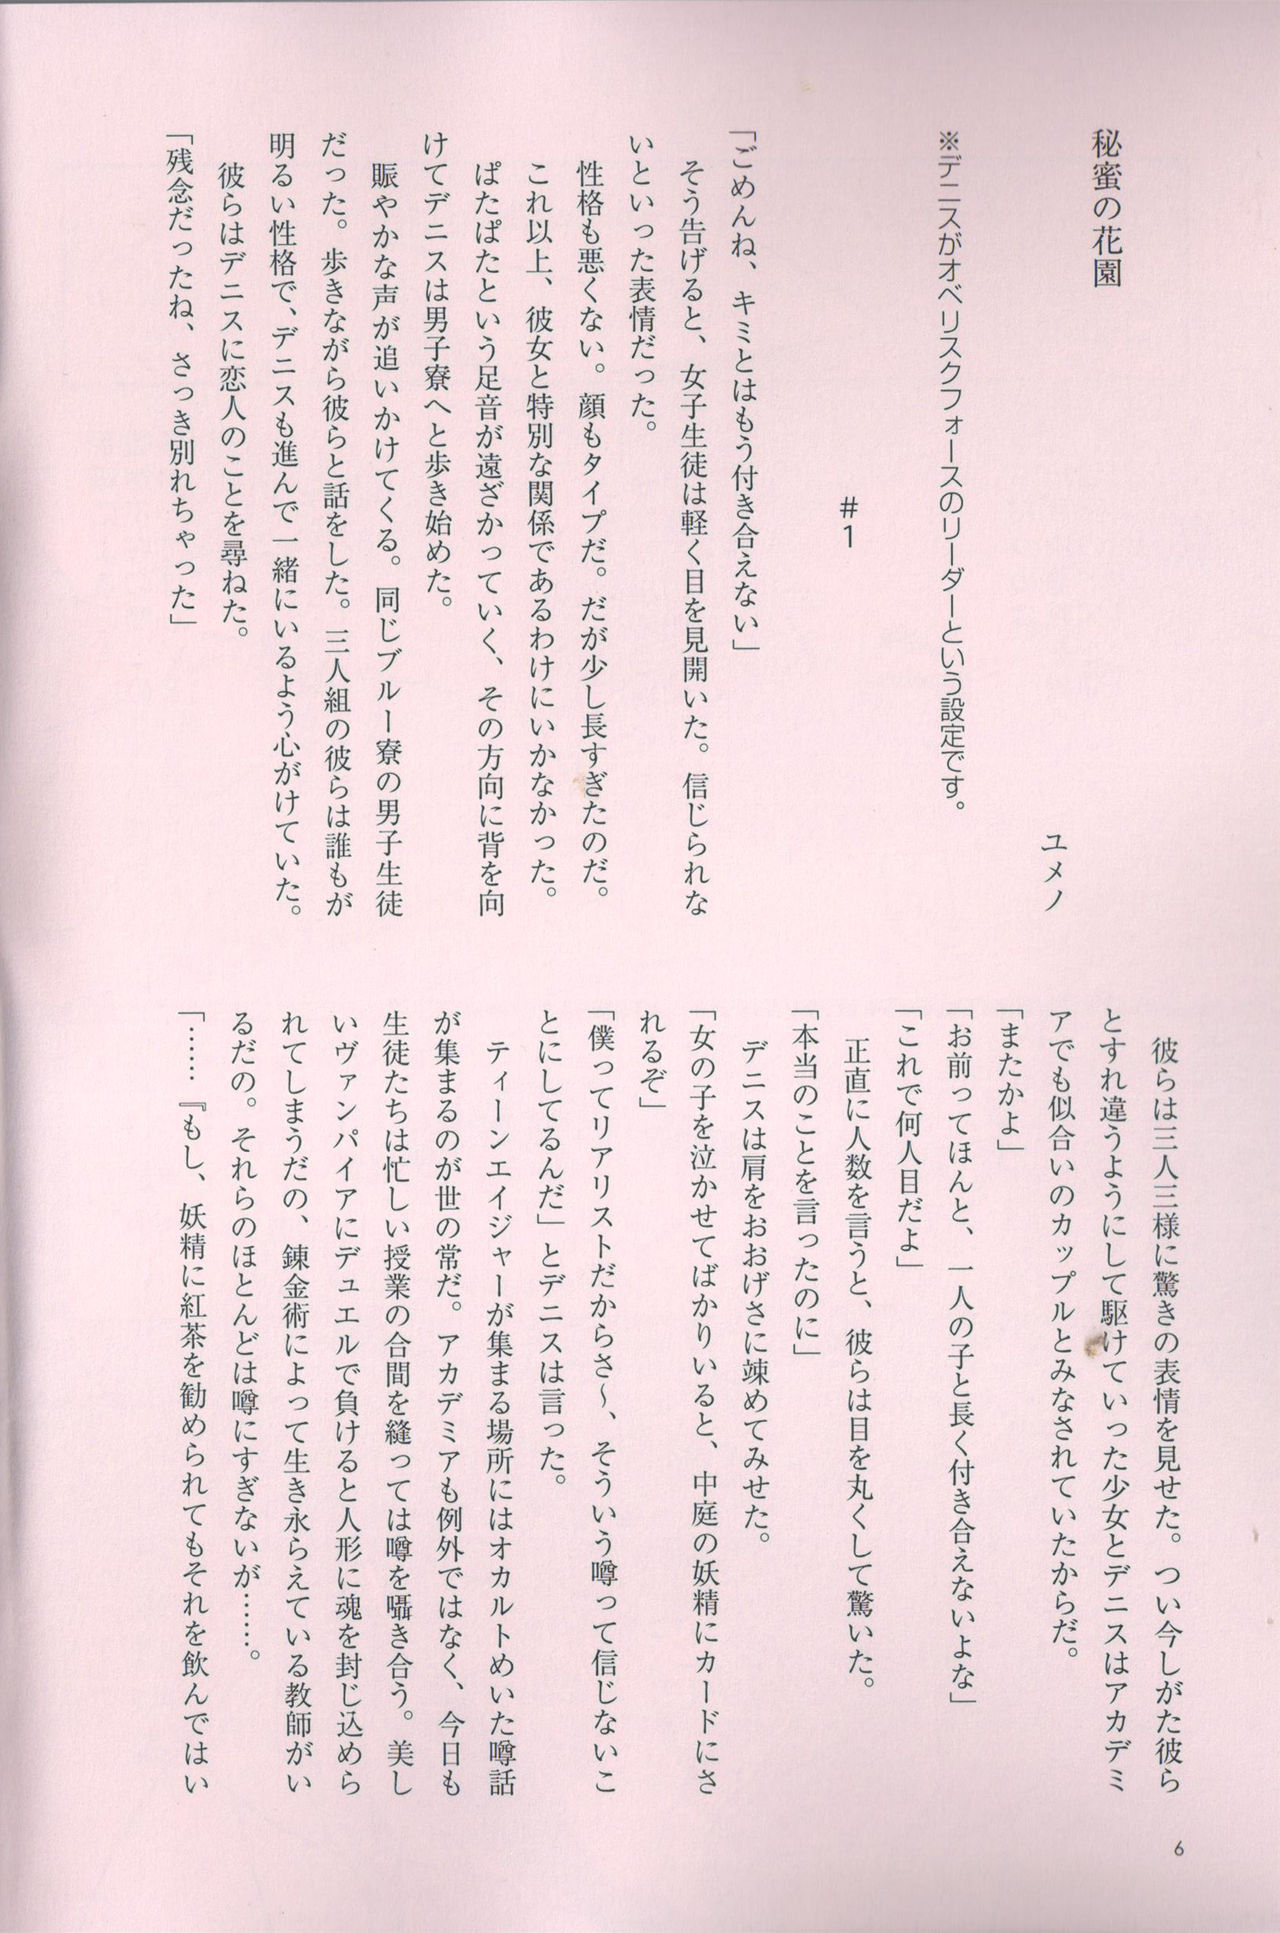 秘蜜の花園
ユメノ
※デニスがオベリスクフォースのリーダーという設定です。
#1
「ごめんね、キミとはもう付き合えない」
そう告げると、女子生徒は軽く目を見開いた。信じられな
いといった表情だった。
性格も悪くない。顔もタイプだ。だが少し長すぎたのだ。
これ以上、彼女と特別な関係であるわけにいかなかった。
ぱたぱたという足音が遠ざかっていく、その方向に背を向
けてデニスは男子寮へと歩き始めた。
賑やかな声が追いかけてくる。同じブルー寮の男子生徒
だった。歩きながら彼らと話をした。三人組の彼らは誰もが
明るい性格で、デニスも進んで一緒にいるよう心がけていた。
彼らはデニスに恋人のことを尋ねた。
「残念だったね、さっき別れちゃった」
彼らは三人三様に驚きの表情を見せた。つい今しがた彼ら
とすれ違うようにして駆けていった少女とデニスはアカデミ
アでも似合いのカップルとみなされていたからだ。
「またかよ」
「お前ってほんと、一人の子と長く付き合えないよな」
「これで何人目だよ」
正直に人数を言うと、彼らは目を丸くして驚いた。
「本当のことを言ったのに」
デニスは肩をおおげさに竦めてみせた。
「女の子を泣かせてばかりいると、中庭の妖精にカードにさ
れるぞ」
「僕ってリアリストだからさ～、そういう噂って信じないこ
とにしてるんだ」とデニスは言った。
ティーンエイジャーが集まる場所にはオカルトめいた噂話
が集まるのが世の常だ。アカデミアも例外ではなく、今日も
生徒たちは忙しい授業の合間を縫っては噂を囁き合う。美し
いヴァンパイアにデュエルで負けると人形に魂を封じ込めら
れてしまうだの、錬金術によって生き永らえている教師がい
るだの。それらのほとんどは噂にすぎないが……。
「……『もし、妖精に紅茶を勧められてもそれを飲んではい
6